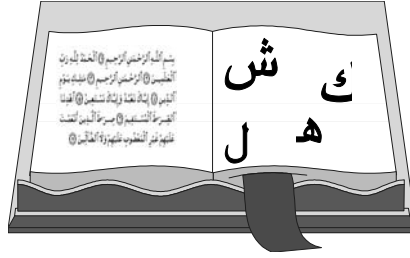 بسم الله الرحمن الرحيم الحمد لله رب
العلمين الرحمن الرحيم ملك يوم
الدين إياك نعبد وإياك نستعين اهدنا
الصرط المستقيم صرط الذين أنعمت
عليهم غير المغضوب عليهم ولا الضالين
ش ك
ل ه